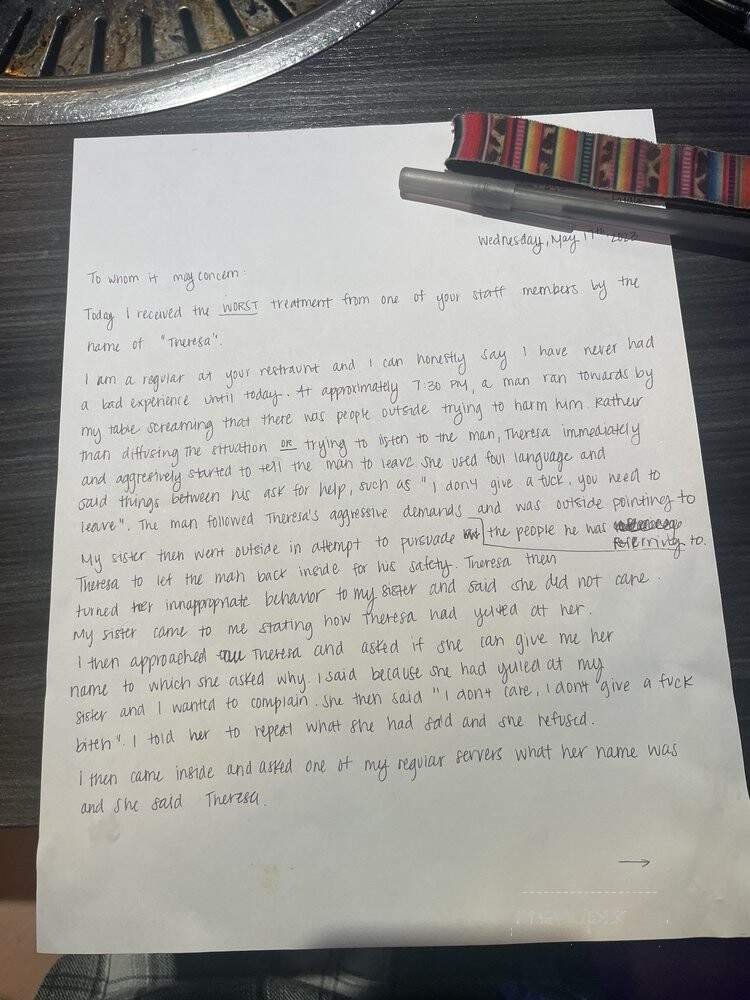 Wednesday, May 17th 2023
To whom it may concern:
Today I received the WORST treatment from one of your staff members by the
name of "Theresa".
I am a regular at your restraunt and I can honestly say I have never had
a bad experience until today. At approximately 7:30 PM, a man ran towards by
my table screaming that there was people outside trying to harm him. Rather
than diffusing the situation OR trying to listen to the man, Theresa immediately
and aggresively started to tell the man to leave. She used foul language and
said things between his ask for help, such as "I don't give a fuck, you need to
leave". The man followed Theresa's aggressive demands and was outside pointing to
the people he was referring to.
My sister then went outside in attempt to pursuade
Theresa to let the man back inside for his safety. Theresa then
turned her innappropriate behavior to my sister and said she did not care.
My sister came to me stating how Theresa had yelled at her.
I then approached Theresa and asked if she can give me her
name to which she asked why. I said because she had yelled at my
sister and I wanted to complain. She then said "I don't care, I don't give a fuck
bitch". I told her to repeat what she had said and she refused.
I then came inside and asked one of my regular servers what her name was
and she said Theresa.